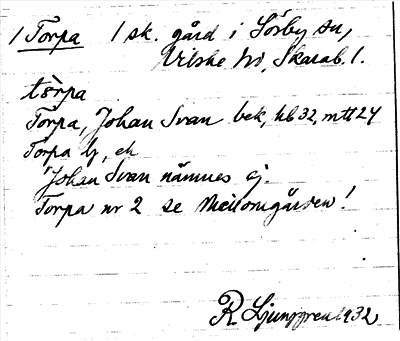 1 Torpa 1 sk. gård i Sörby sn,
Vilske hd, Skarab. l.
tòrpa
Torpa, Johan Svan bek, hb 32, mtl 24
Torpa by, ek
Johan Svan nämnes ej.
Torpa nr 2 se Mellomgården!
R. Ljunggren 1932